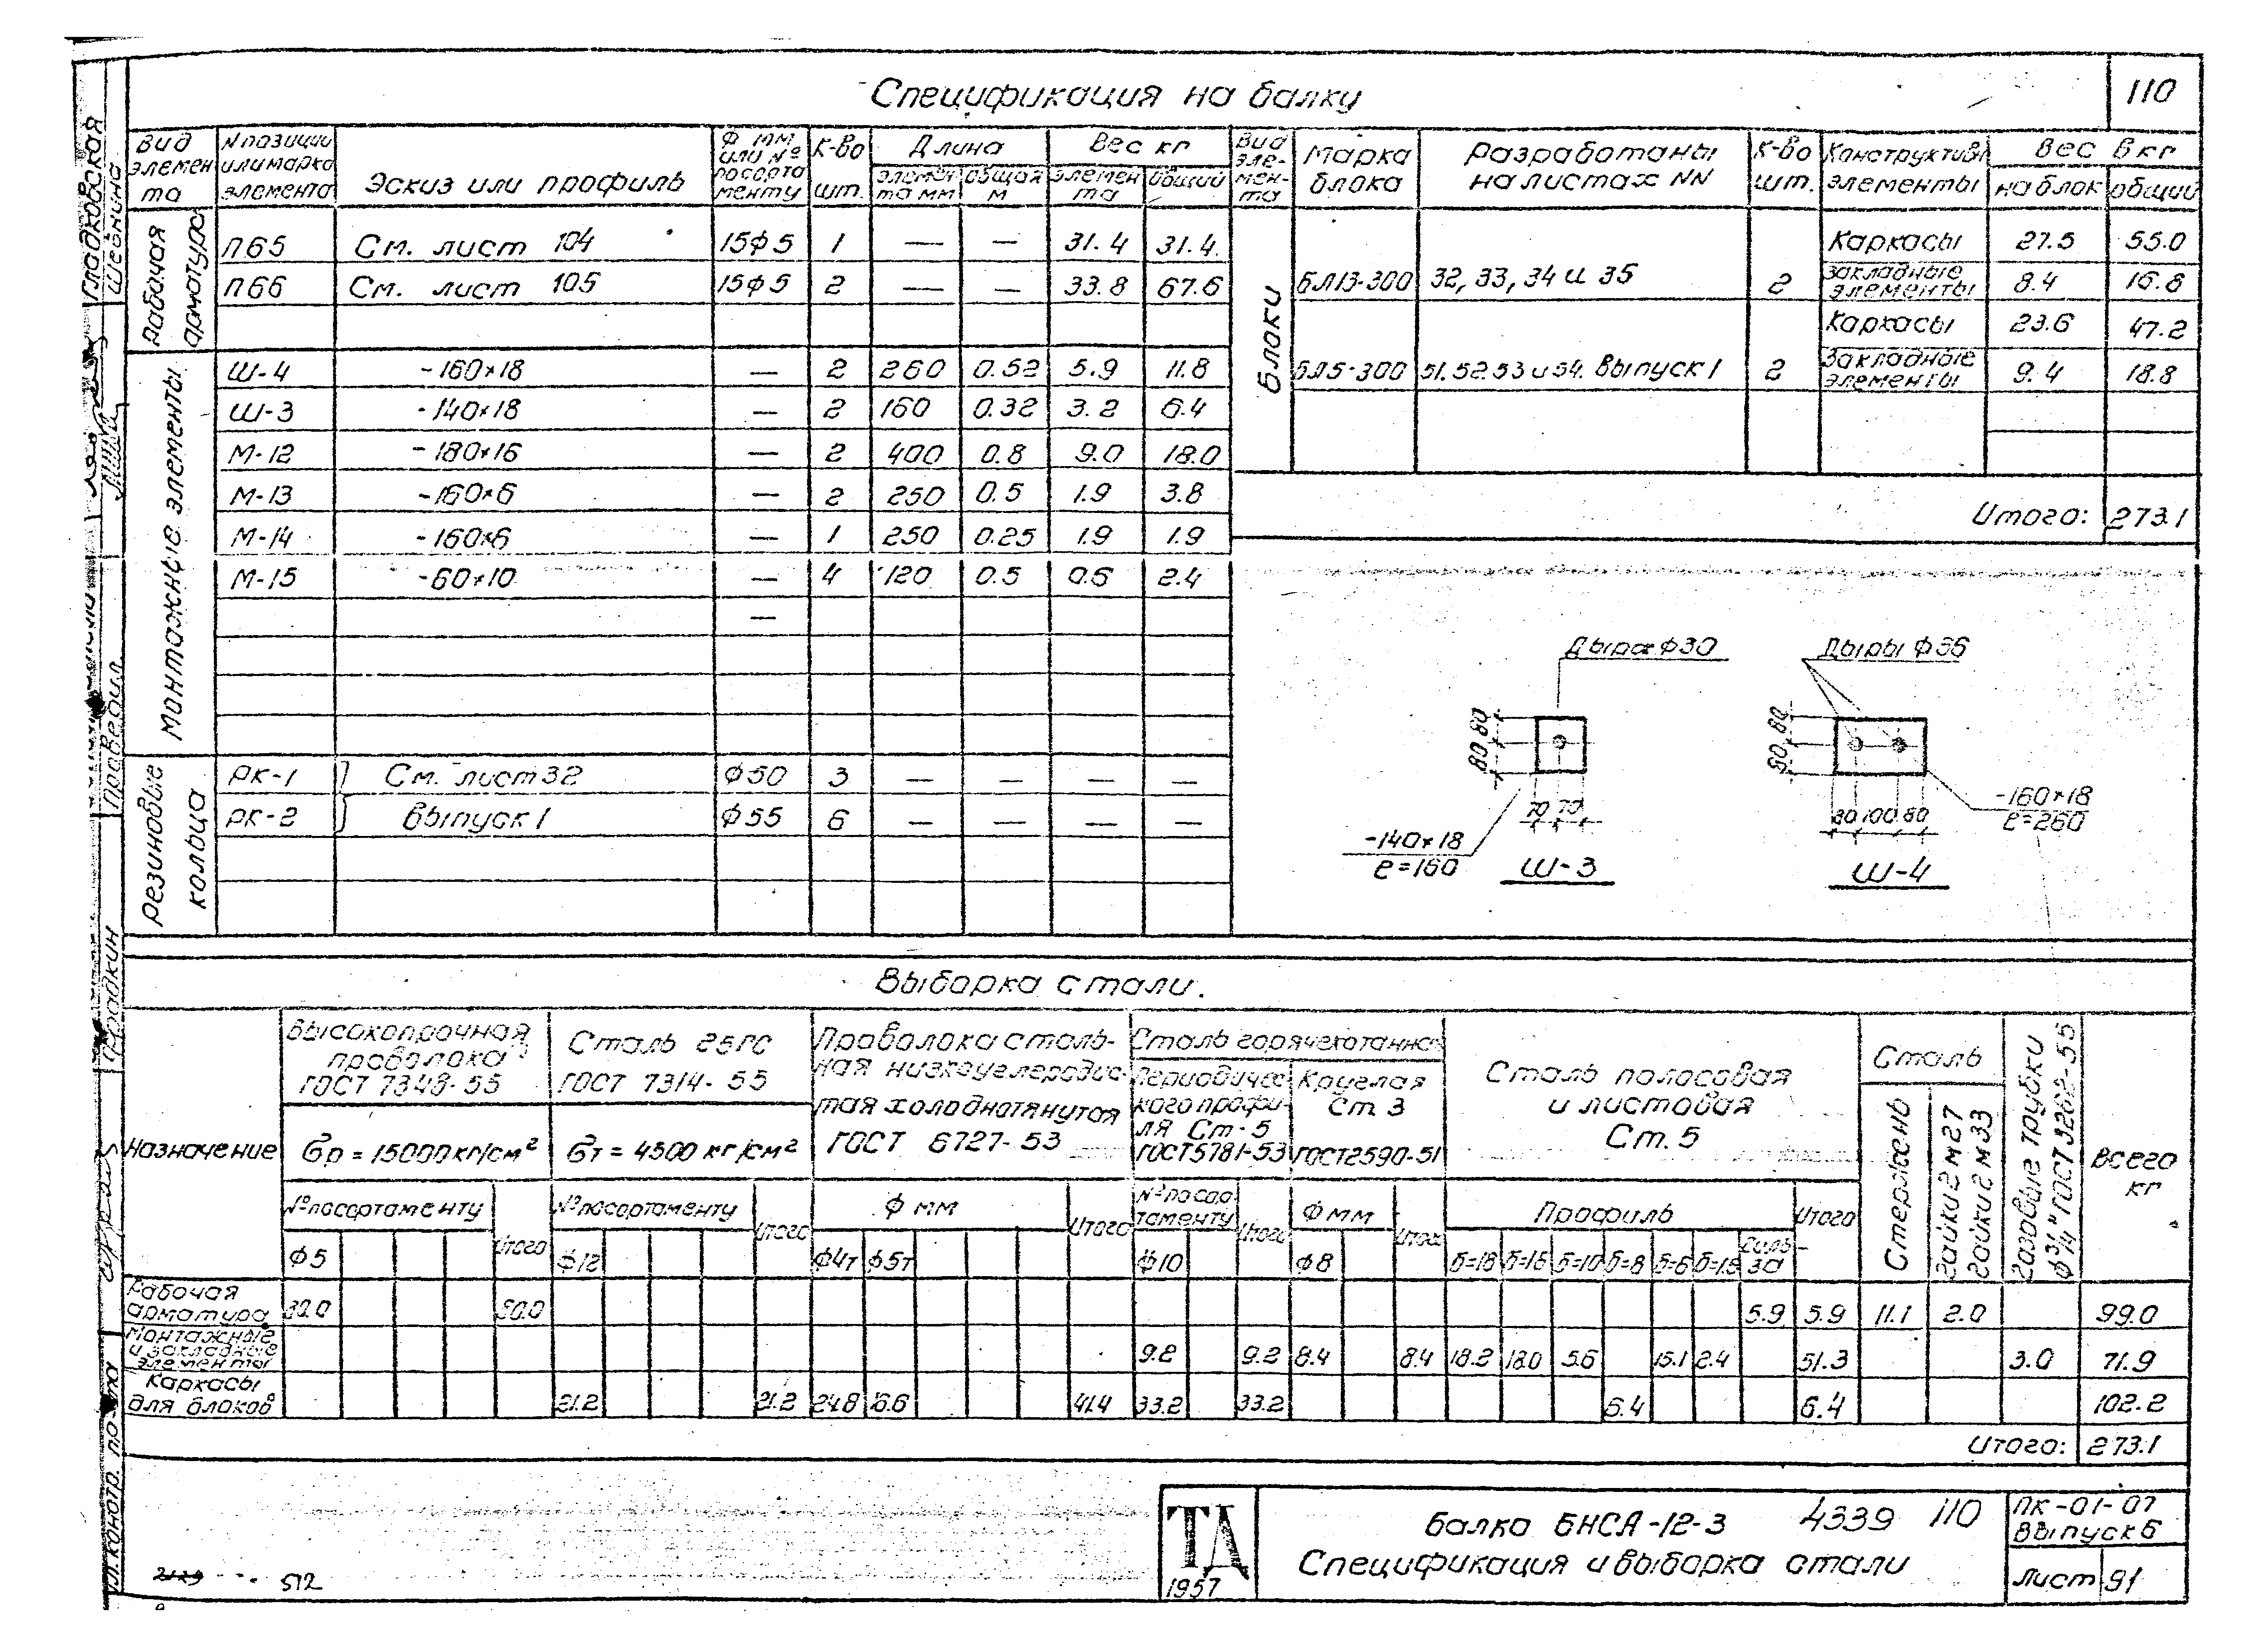 110
Спецификация на балку
Вид элемента | N позиции или марка элемента | Эскиз или профиль | Ф мм или № по сортаменту | К-во шт. | Длина | Вес кг
элемента мм | общая м | элемента | общий
Рабочая арматура
П65 См. лист 104 15ф5 1 — — 31.4 31.4
П66 См. лист 105 15ф5 2 — — 33.8 67.6
Монтажные элементы
Ш-4 -160×18 — 2 260 0.52 5.9 11.8
Ш-3 -140×18 — 2 160 0.32 3.2 6.4
М-12 -180×16 — 2 400 0.8 9.0 18.0
М-13 -160×6 — 2 250 0.5 1.9 3.8
М-14 -160×6 — 1 250 0.25 1.9 1.9
М-15 -60×10 — 4 120 0.5 0.6 2.4
—
Резиновые кольца
РК-1 } См. лист 32 ф50 3 — — — —
РК-2 } выпуск 1 ф55 6 — — — —
Вид элемента | Марка блока | Разработаны на листах NN | К-во шт. | Конструктивн. элементы | Вес в кг
на блок | общий
Блоки
БЛ13-300 32, 33, 34 и 35 2
Каркасы 27.5 55.0
Закладные элементы 8.4 16.8
БЛ5-300 51. 52. 53 и 54. Выпуск 1 2
Каркасы 23.6 47.2
Закладные элементы 9.4 18.8
Итого: 273.1
Дыра ф30
80 80
70 70
-140×18
ℓ=160
Ш-3
Дыры ф36
80 80
80 100 80
-160×18
ℓ=260
Ш-4
Выборка стали.
Назначение
Высокопрочная проволока
ГОСТ 7348-55
σр = 15000 кг/см²
№ по сортаменту
ф5
Итого
Сталь 25ГС
ГОСТ 7314-55
σт = 4500 кг/см²
№ по сортаменту
ф12
Итого
Проволока стальная низкоуглеродистая холоднотянутая
ГОСТ 6727-53
ф мм
ф4т ф5т
Итого
Сталь горячекатанная
Периодического профиля Ст-5
ГОСТ 5781-53
№ по сортаменту
ф10
Итого
Круглая Ст. 3
ГОСТ 2590-51
ф мм
ф8
Итого
Сталь полосовая и листовая
Ст. 5
Профиль
δ=18 δ=16 δ=10 δ=8 δ=6 δ=1.5
Итого
Сталь
Стержень
Гайки 2 м 27
Гайки 2 м 33
Газовые трубки ф 3/4" ГОСТ 3262-55
Всего кг
Рабочая арматура 80.0 80.0 5.9 5.9 11.1 2.0 99.0
Монтажные и закладные элементы 9.2 9.2 8.4 8.4 18.2 18.0 5.6 15.1 2.4 51.3 3.0 71.9
Каркасы для блоков 21.2 21.2 24.8 16.6 41.4 33.2 33.2 6.4 6.4 102.2
Итого: 273.1
ТД
1957
Балка БНСА-12-3 4339 110
Спецификация и выборка стали
ПК-01-07
Выпуск 6
Лист 91
2129
512
Гладковская
Шейнина
Проверил.
Фрадкин